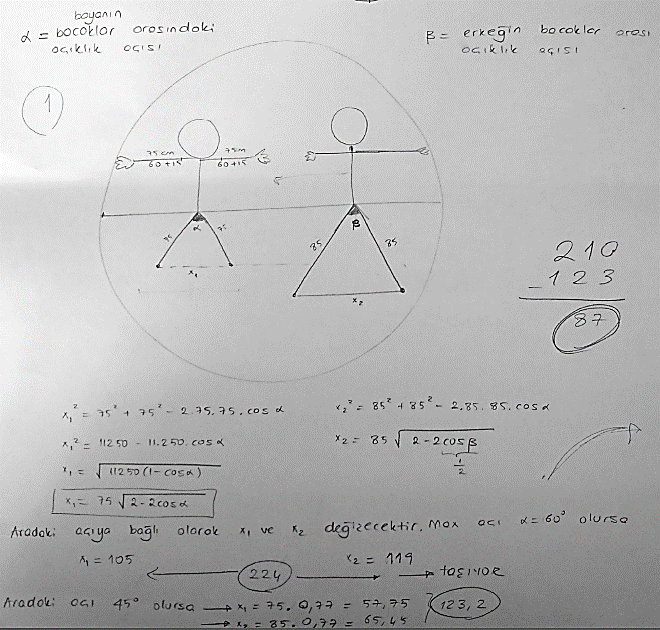 α = bayanın bacaklar arasındaki açıklık açısı
β = erkeğin bacaklar arası açıklık açısı
1
75cm 75cm
60+15 60+15
α β
75 75 85 85
x₁ x₂
210
- 123
87
x₁² = 75² + 75² - 2.75.75.cos α
x₁² = 11250 - 11.250.cos α
x₁ = √11250(1-cosα)
x₁ = 75 √2-2cosα
x₂² = 85² + 85² - 2.85.85.cos α
x₂ = 85 √2-2cosβ
1/2
Aradaki açıya bağlı olarak x₁ ve x₂ değişecektir. Max açı α=60° olursa
x₁ = 105 x₂ = 119
224 → taşıyor
Aradaki açı 45° olursa → x₁ = 75.0,77 = 57,75
→ x₂ = 85.0,77 = 65,45
123,2